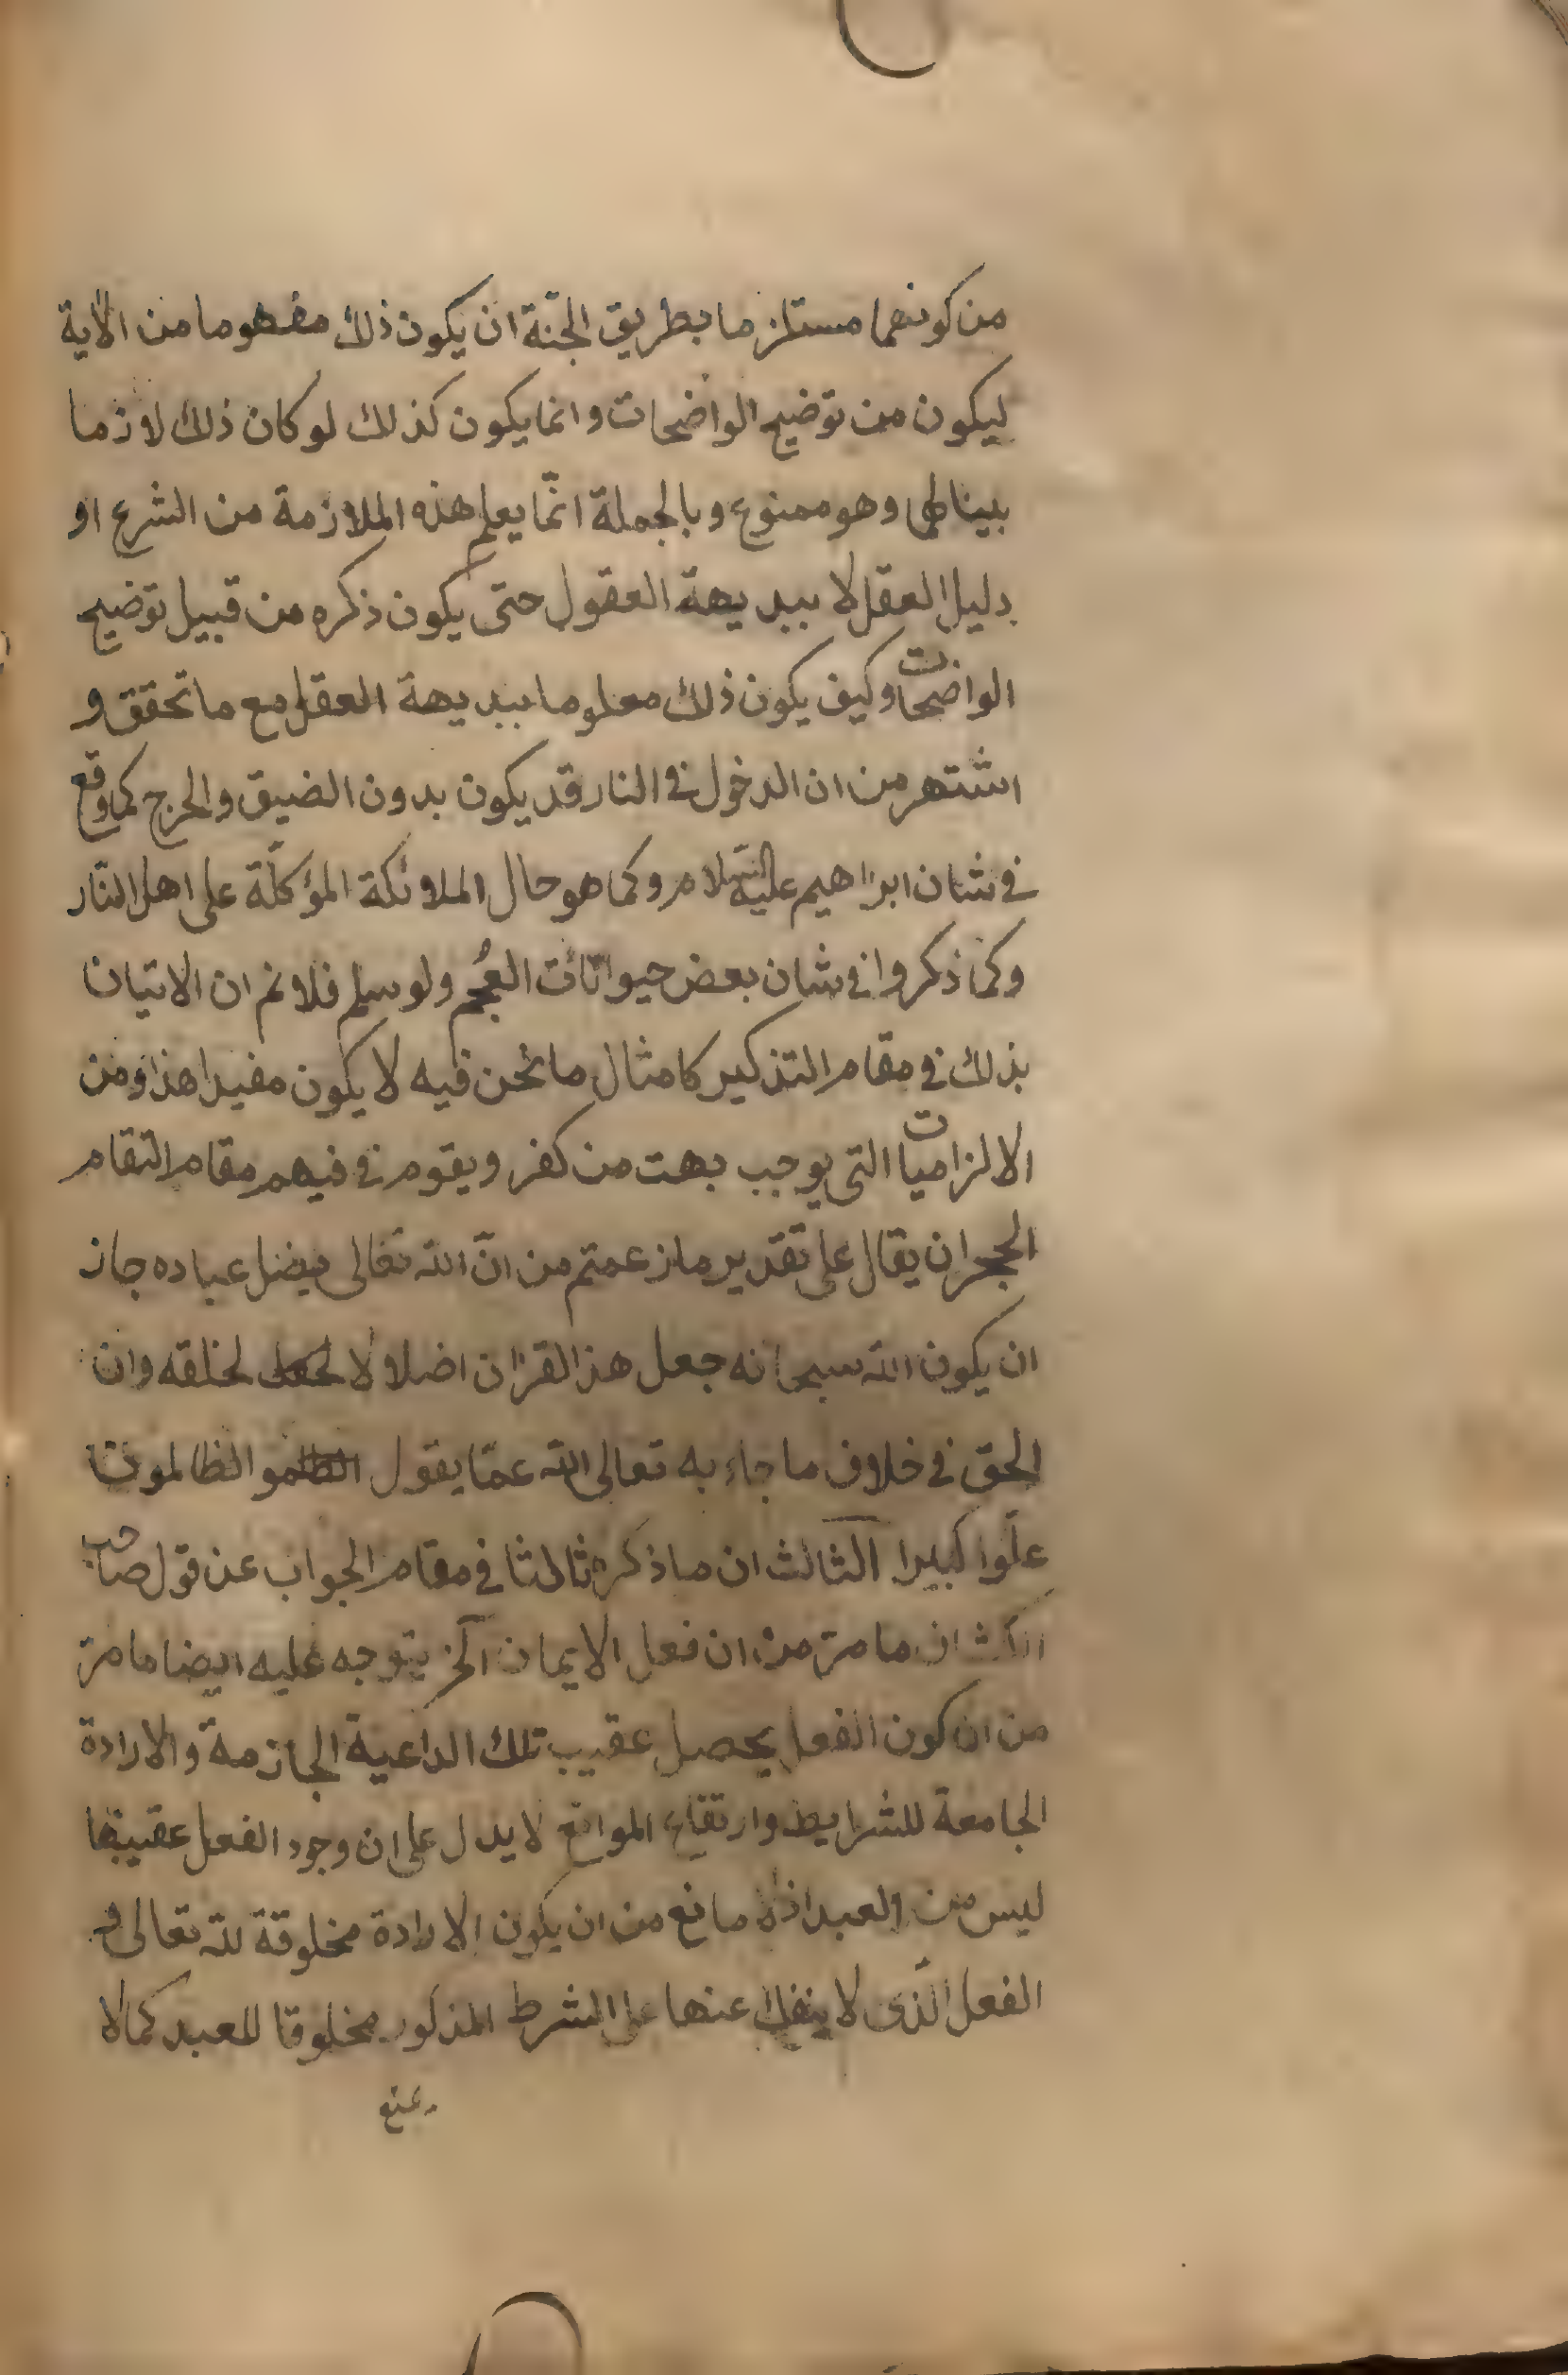 من كونهما مستلزما بطريق الجنّة ان يكون ذلك مفهوما من الآية
ليكون من توضيح الواضحات وانما يكون كذلك لو كان ذلك لازما
بينا لها وهو ممنوع وبالجملة انمّا يعلم هذه الملازمة من الشرع او
دليل العقل لا ببديهة العقول حتى يكون ذكره من قبيل توضيح
الواضحات وكيف يكون ذلك معلوما ببديهة العقل مع ما تحقق و
اشتهر من ان الدخول في النار قد يكون بدون الضيق والحرج كما وقع
في شان ابراهيم عليه السّلام وكما هو حال الملائكة المؤكلّة على اهل النّار
وكما ذكروا في شان بعض حيوانات العُجم ولو سلم فلا نم ان الاتيان
بذلك في مقام التذكير كامثال ما نحن فيه لا يكون مفيدا هذا ومن
الالزاميات التى يوجب بهت من كفر ويقوم في فيهم مقام التقام
الحجر ان يقال على تقدير ما زعمتم من انّ الله تعالى يضل عباده جاز
ان يكون الله سبحانه جعل هذا القرآن اضلالا لخلقه وان
الحق في خلاف ما جاء به تعالى الله عمّا يقول الظالمون
علّوا كبيرا الثالث ان ما ذكره ثالثا في مقام الجواب عن قول صاحب
الكشاف ما مرّ من ان فعل الايمان آلخ يتوجه عليه ايضا ما مرّ
من ان كون الفعل يحصل عقيب تلك الداعية الجازمة والارادة
الجامعة للشرايط وارتفاع الموانع لا يدل على ان وجود الفعل عقيبها
ليس من العبد اذ لا مانع من ان يكون الارادة مخلوقة لله تعالى و
الفعل الّذى لا ينفك عنها على الشرط المذكور مخلوقا للعبد كما لا
يمنع